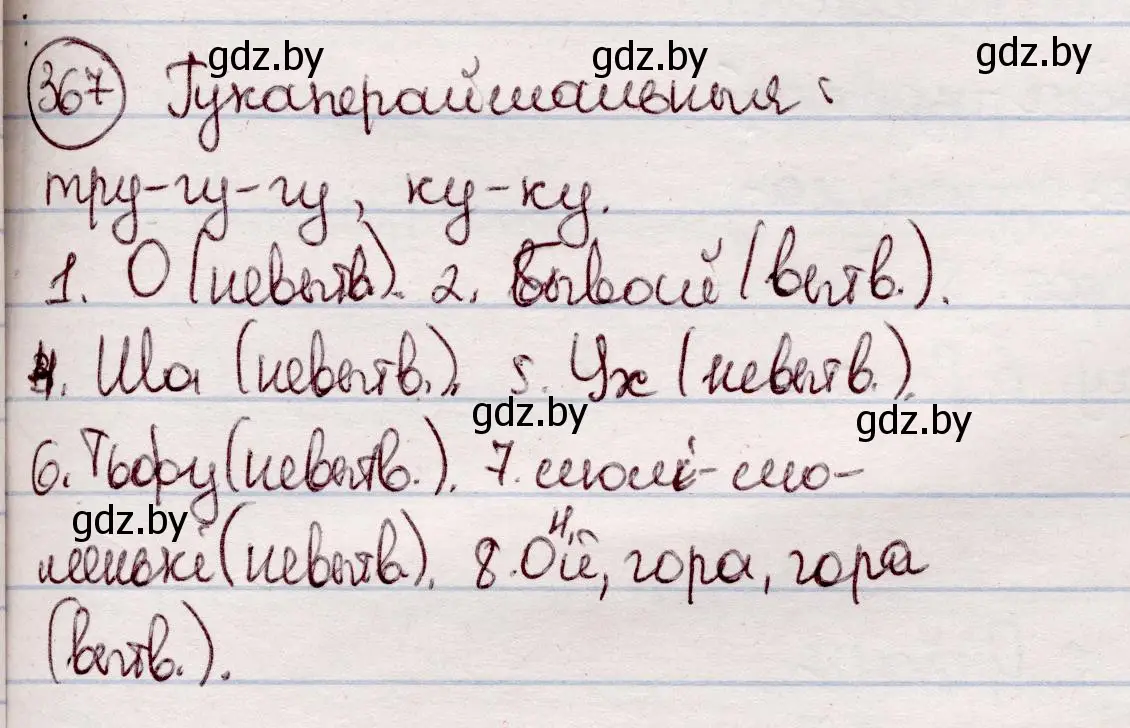 gdz.by gdz.by gdz.by
367 Гукаперайманыя :
тру-гу-гу, ку-ку.
1. О (невытв.). 2. Бывай (вытв.).
4. Ша (невытв.). 5. Ух (невытв.).
gdz.by gdz.by
6. Тьфу (невытв.). 7. люлі-лю-
gdz.by
ленькі (невытв.). 8. Ой, гора, гора
(вытв.).